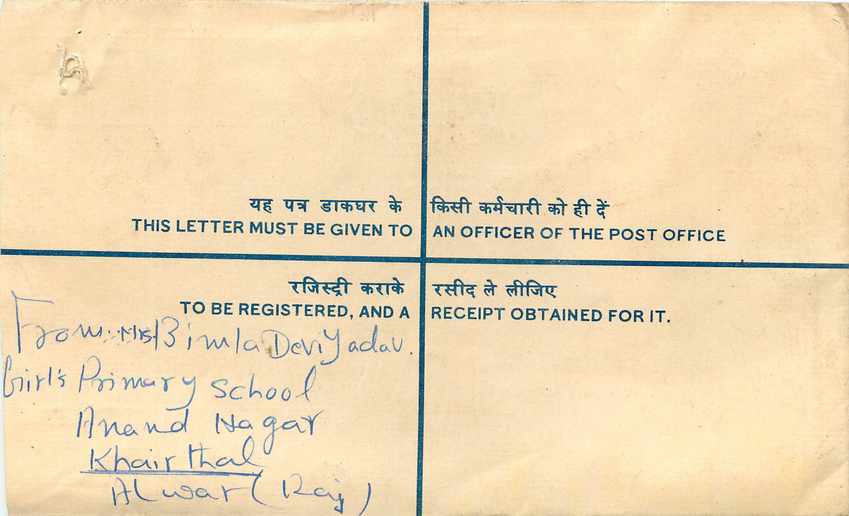 यह पत्र डाकघर के किसी कर्मचारी को ही दें
THIS LETTER MUST BE GIVEN TO AN OFFICER OF THE POST OFFICE
रजिस्ट्री कराके रसीद ले लीजिए
TO BE REGISTERED, AND A RECEIPT OBTAINED FOR IT.
From:- Mrs Bimla Devi Yadav.
Girl's Primary School
Anand Nagar
Khairthal
Alwar (Raj)